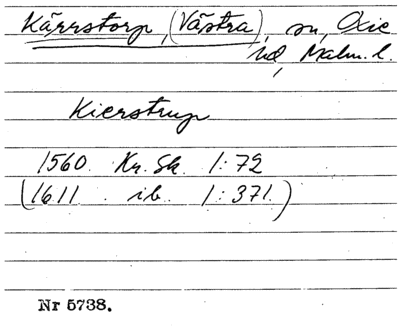 Kärrstorp, (Västra), sn, Oxie
hd, Malm. l.
Kierstrup
1560. Kr. Sk. 1:72
(1611. ib. 1:371.)
Nr 5738.